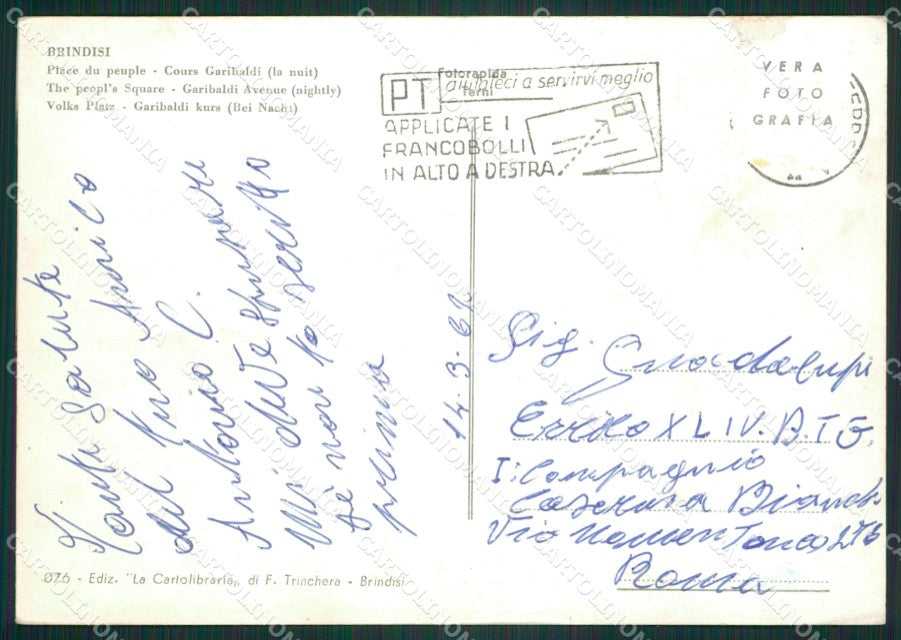 BRINDISI
Place du peuple - Cours Garibaldi (la nuit)
The peopl's Square - Garibaldi Avenue (nightly)
Volks Platz - Garibaldi kurs (Bei Nacht)
Fotorapida
Terni
PT aiutateci a servirvi meglio
APPLICATE I
FRANCOBOLLI
IN ALTO A DESTRA
VERA
FOTO
GRAFIA
Tanti Salute
dal tuo Amico
Antonio C.
Mi deve scusare
se non to scritto
prima
14.3.62
Sig. Guadalupi
Errico XLIV. B.T G.
I: Compagnio
Caserma Bianchi
Via Nomentana
Roma
076 - Ediz. "La Cartolibraria" di F. Trinchera - Brindisi
CARTOLINOMANIA